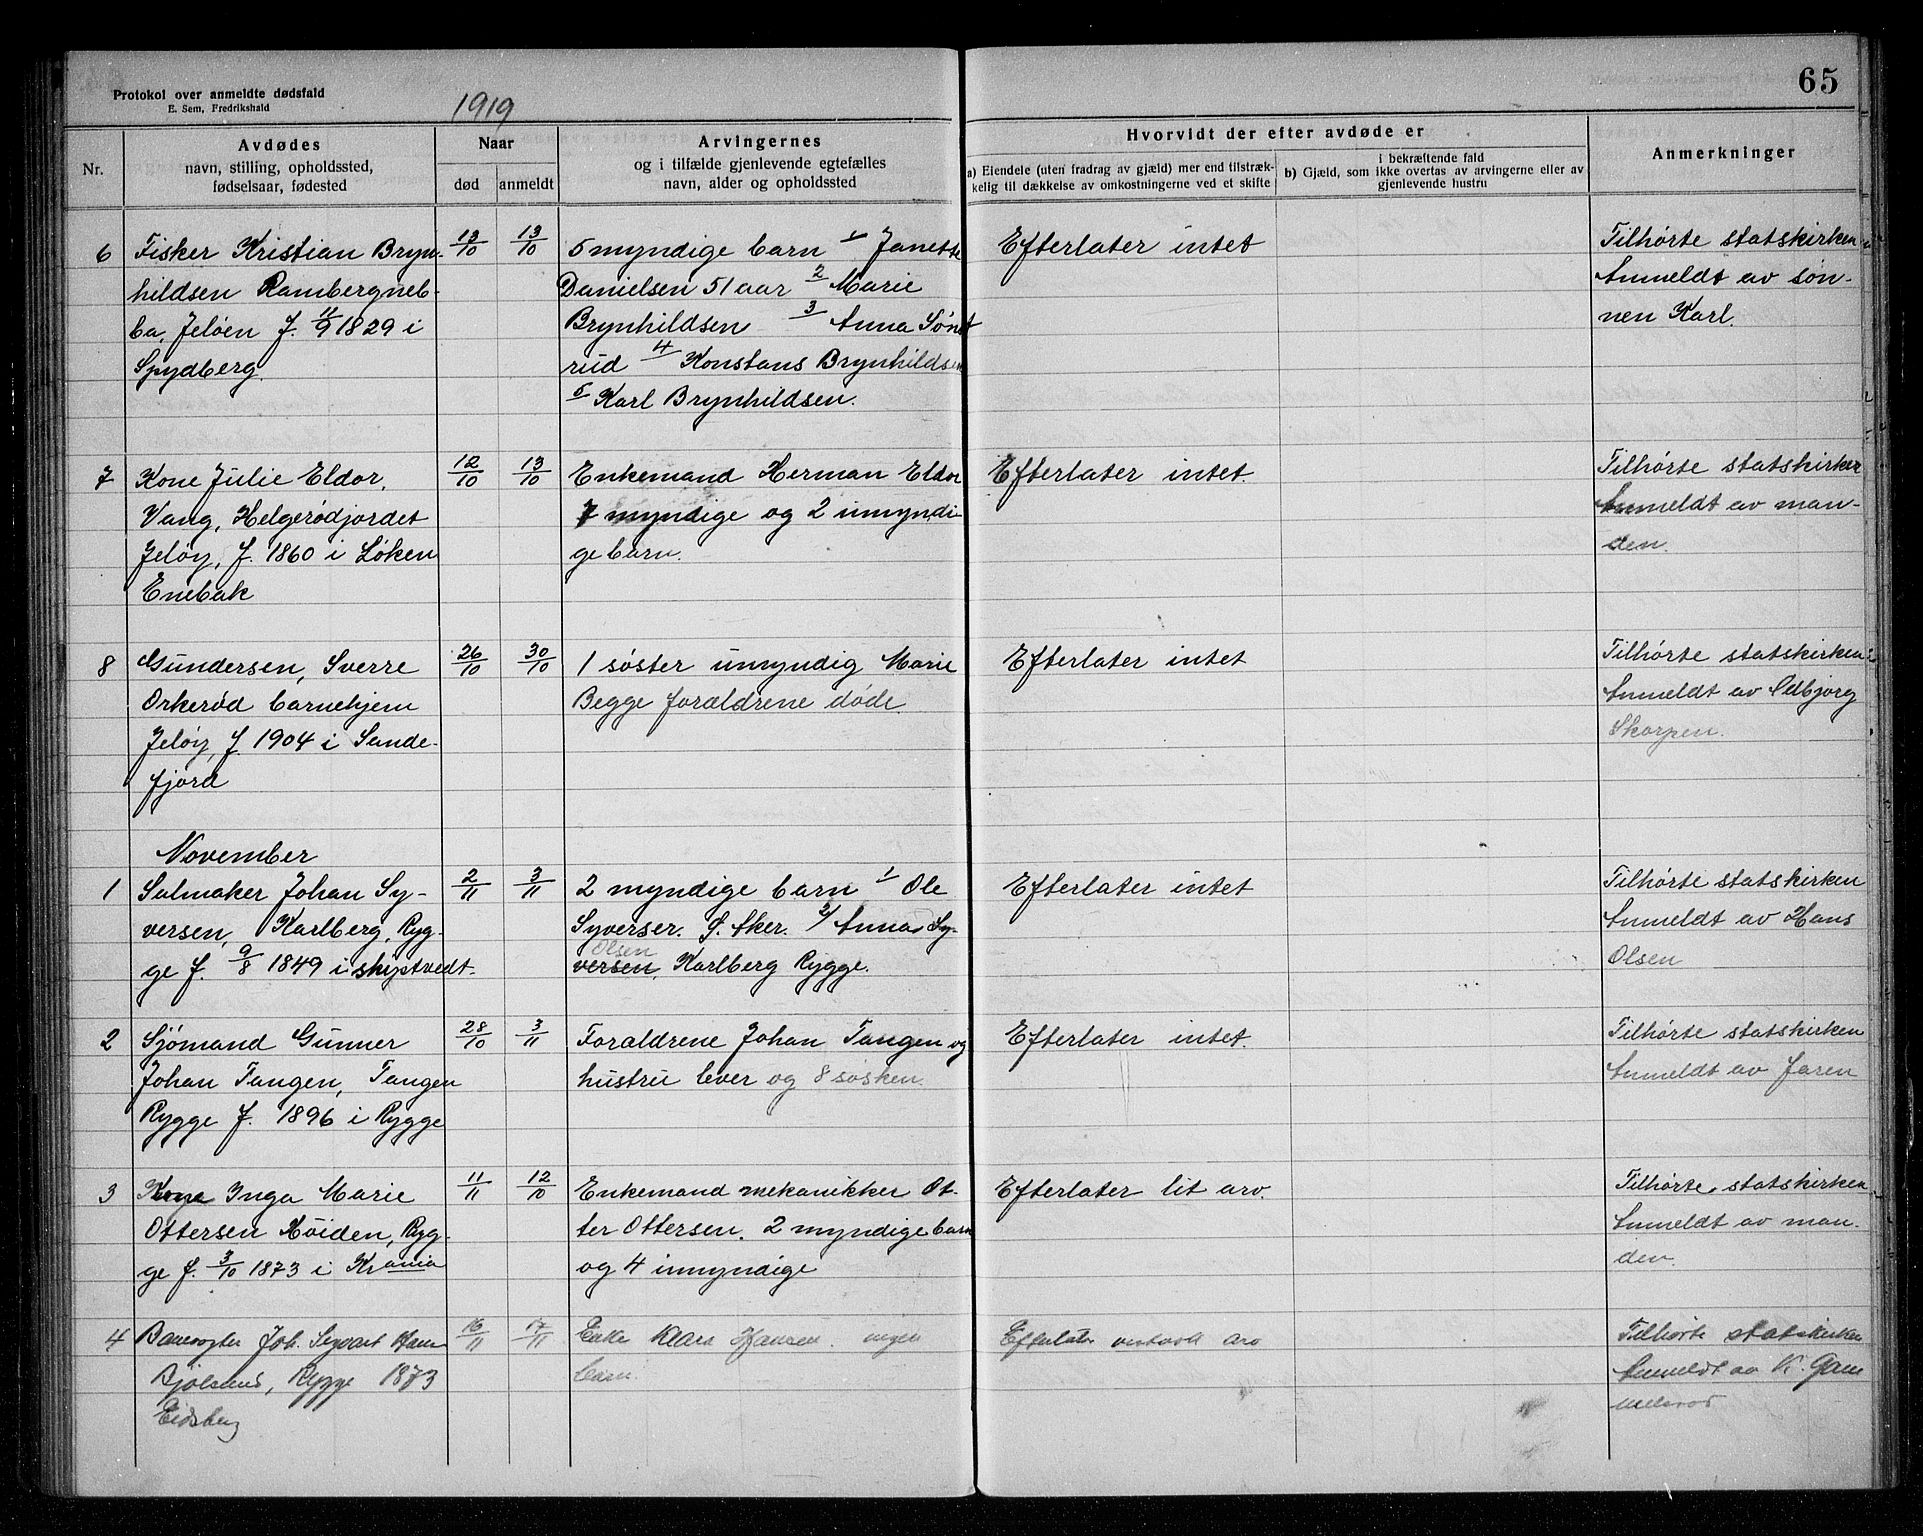 Protokol over anmeldte dødsfald
E. Sem, Fredrikshald
1919
65
Nr.
Avdødes
navn, stilling, opholdssted,
fødselsaar, fødested
Naar
død
anmeldt
Arvingernes
og i tilfælde gjenlevende egtefælles
navn, alder og opholdssted
Hvorvidt der efter avdøde er
a) Eiendele (uten fradrag av gjæld) mer end tilstræk-
kelig til dækkelse av omkostningerne ved et skifte
i bekræftende fald
b) Gjæld, som ikke overtas av arvingerne eller av
gjenlevende hustru
Anmerkninger
6 Fisker Kristian Bryn-
hildsen Rambergneb-
ba, Jeløen f. 11/9 1829 i
Spydberg.
13/10
13/10
5 myndige barn 1 Janette
Danielsen 51 aar 2 Marie
Brynhildsen 3 Anna Sønst
rud 4 Konstans Brynhildsen
5 Karl Brynhildsen.
Efterlater intet
Tilhørte statskirken
Anmeldt av søn-
nen Karl.
7 Kone Julie Eldor,
Vang, Helgerødjordet
Jeløy, f. 1860 i Løken
Enebak
12/10
13/10
Enkemand Herman Eldor
7 myndige og 2 umyndi
ge barn.
Efterlater intet.
Tilhørte statskirken
Anmeldt av man-
den.
8 Gundersen, Sverre
Orkerød barnehjem
Jeløy, f 1904 i Sande-
fjord
26/10
30/10
1 søster umyndig Marie
Begge forældrene døde.
Efterlater intet
Tilhørte statskirken
Anmeldt av Odbjørg
Skorpen.
November
1 Salmaker Johan Sy-
versen, Karlberg, Ryg-
ge f. 9/8 1849 i skiptvedt.
2/11
3/11
2 myndige barn 1 Ole
Syversen. Ø. Aker. 2/ Anna Sy-
Olsen
versen, Karlberg Rygge.
Efterlater intet
Tilhørte statskirken
Anmeldt av Hans
Olsen
2 Sjømand Gunner
Johan Tangen, Tangen
Rygge f. 1896 i Rygge
28/10
3/11
Forældrene Johan Tangen og
hustru lever og 8 søsken.
Efterlater intet.
Tilhørte statskirken
Anmeldt av Faren
3 Kone Inga Marie
Ottersen Høiden, Ryg-
ge f. 3/10 1873 i Krania
11/11
12/10
Enkemand mekanikker Ot-
ter Ottersen. 2 myndige barn
og 4 umyndige
Efterlater lit arv.
Tilhørte statskirken
Anmeldt av man-
den.
4 Banevogter Joh. Sigvart Hans
Rygge 1873
Eidsberg
16/11
17/11
Enke Klara Hansen. ingen
barn.
Efterlater arv
Tilhørte statskirken
Anmeldt av K. Gam
melsrød